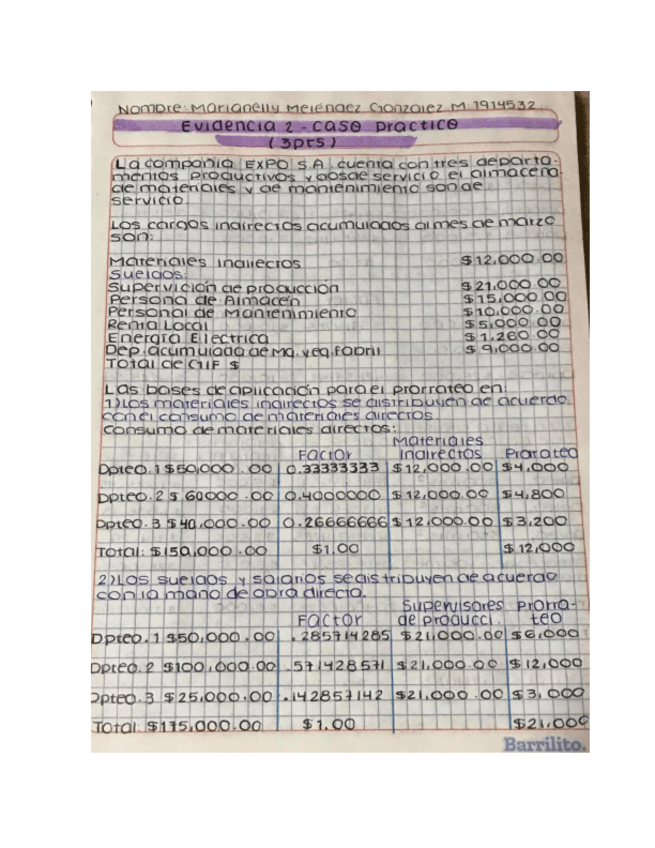 Nombre: Marianelly Melendez Gonzalez M. 1914532
Evidencia 2 - Caso Practico
(3pts)
La compañia EXPO S A cuenta con tres departa-
mentos productivos y dosde servicio el almacena
de materiales y de mantenimiento son de
servicio
Los cargos indirectos acumulados al mes de marzo
son:
Materiales indirectos $12,000.00
Sueldos:
Supervición de producción $21,000.00
Persona de Almacén $15,000.00
Personal de Mantenimiento $10,000.00
Renta Local $5,000.00
Energía Electrica $1,260.00
Dep. acumulada de Mq. y eq. Fabril $9,000.00
Total de GIF $
Las bases de aplicación para el prorrateo en:
1) Los materiales indirectos se distribuyen de acuerdo
con el consumo de materiales directos
Consumo de materiales directos:
Factor Materiales Indirectos Prorateo
Dpteo. 1 $50,000.00 0.33333333 $12,000.00 $4,000
Dpteo. 2 $60000.00 0.4000000 $12,000.00 $4,800
Dpteo. 3 $40,000.00 0.26666666 $12,000.00 $3,200
Total: $150,000.00 $1.00 $12,000
2) Los sueldos y salarios se distribuyen de acuerdo
con la mano de obra directa.
Factor Supervisores de producci. Prorra-teo
Dpteo. 1 $50,000.00 .285714285 $21,000.00 $6,000
Dpteo. 2 $100,000.00 .571428571 $21,000.00 $12,000
Dpteo. 3 $25,000.00 .142857142 $21,000.00 $3,000
Total $175,000.00 $1.00 $21,000
Barrilito.